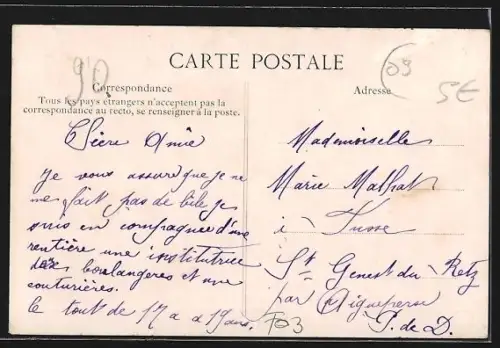 CARTE POSTALE
Correspondance
Tous les pays étrangers n'acceptent pas la
correspondance au recto, se renseigner à la poste.
Adresse
Chère Amie
Je vous assure que je ne
me fait pas de bile je
suis en compagnie d'une
rentière une institutrice
des boulangeres et une
couturières.
le tout de 17 a a 19 ans.
Mademoiselle
Marie Malbat
à
St Genest du Retz
par Aigueperse
P. de D.
09
5€